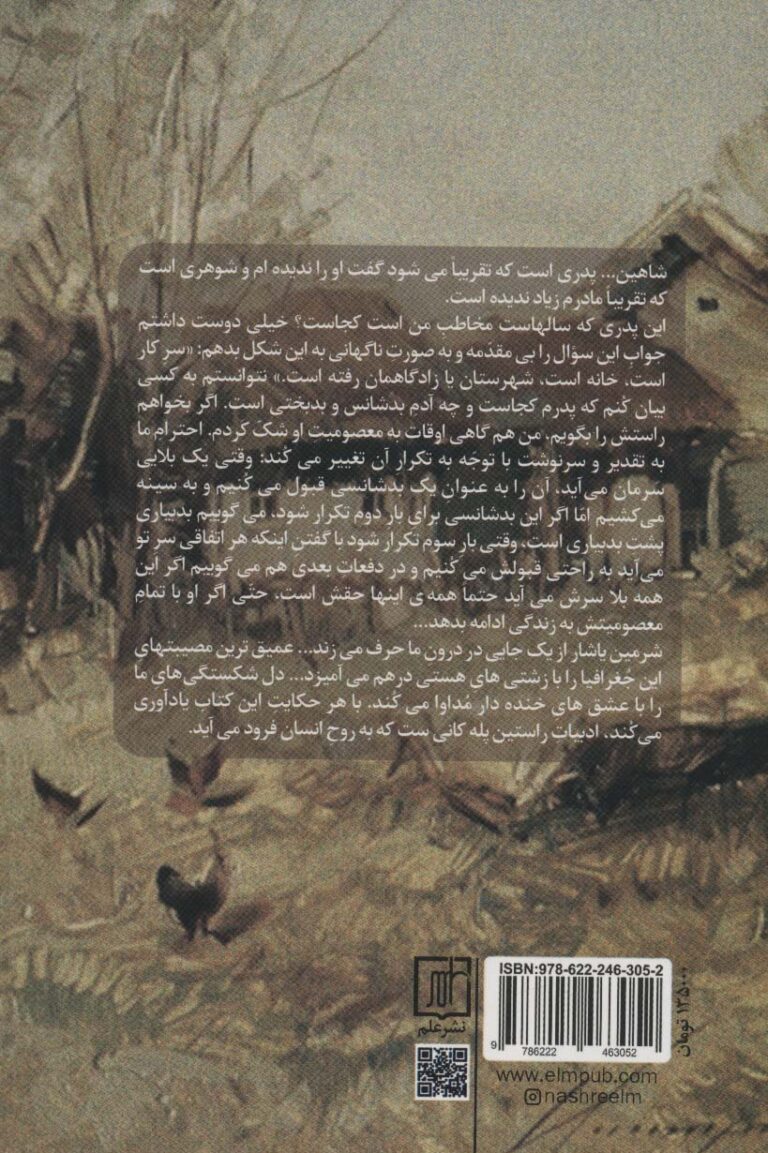 شاهین... پدری است که تقریباً می شود گفت او را ندیده ام و شوهری است
که تقریباً مادرم زیاد ندیده است.
این پدری که سالهاست مخاطبِ من است کجاست؟ خیلی دوست داشتم
جوابِ این سؤال را بی مقدّمه و به صورت ناگهانی به این شکل بدهم: «سرِ کار
است، خانه است، شهرستان یا زادگاهمان رفته است.» نتوانستم به کسی
بیان کُنم که پدرم کجاست و چه آدم بدشانس و بدبختی است. اگر بخواهم
راستش را بگویم، من هم گاهی اوقات به معصومیت او شک کردم. احترام ما
به تقدیر و سرنوشت با توجه به تکرار آن تغییر می کُند: وقتی یک بلایی
سرمان می‌آید، آن را به عنوان یک بدشانسی قبول می کُنیم و به سینه
می‌کشیم امّا اگر این بدشانسی برای بار دوم تکرار شود، می گوییم بدبیاری
پشت بدبیاری است، وقتی بار سوم تکرار شود با گفتن اینکه هر اتفاقی سر تو
می‌آید به راحتی قبولش می کُنیم و در دفعات بعدی هم می گوییم اگر این
همه بلا سرش می آید حتماً همه ی اینها حقش است، حتّی اگر او با تمام
معصومیتش به زندگی ادامه بدهد...
شرمین یاشار از یک جایی در درون ما حرف می زند... عمیق ترین مصیبتهای
این جُغرافیا را با زشتی های هستی درهم می آمیزد... دل شکستگی‌های ما
را با عشق های خنده دار مُداوا می کُند. با هر حکایت این کتاب یادآوری
می‌کُند، ادبیات راستین پله کانی ست که به روح انسان فرود می آید.
ISBN:978-622-246-305-2
9 786222 463052
۱۳۵۰۰۰ تومان
نشر علم
www.elmpub.com
nashreelm